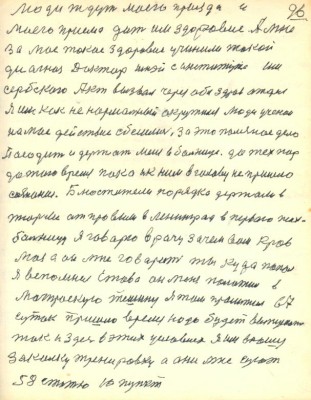 96
Люди ждут моего приезда и
моего приема дит им здоровие. А мне
за мое такое здоровие учинили такой
диагноз Доктор институте им
сербского Акт вызвал через обс здрав отдел
Я им как не нормальный окружил люди учено
на мое действие обешились, За это полячное дело
Посодит и держат меня в больнице. до тех пор
до того время пока к ним в голову не пришло
сознание. Блюстители порядка держали в
тюрьме отправили в Ленинград в первого псих-
больницу Я говорю врачу зачем вам кров
моя а он мне говорет ты куда попал
Я вспомнил слова он меня положил в
Матроскую тишину я там пролежал 67
суток пришло время надо будет выписывать
так и здес в этих условиях Я им
закалку тренировку а они мне суют
58 статю 10 пункт